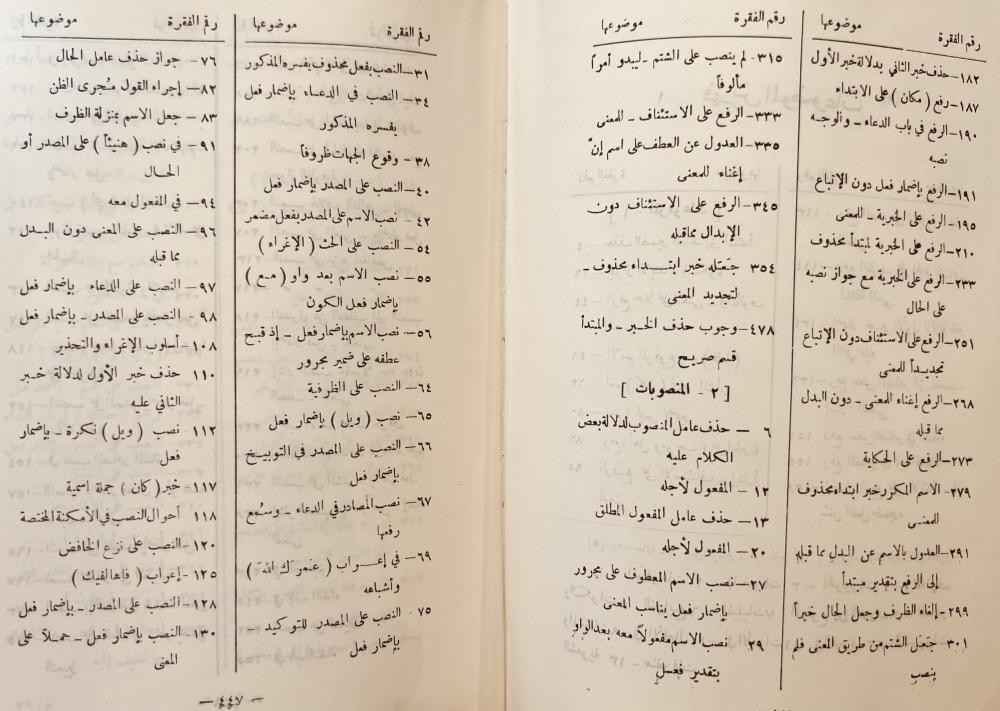 رقم الفقرة موضوعها
١٨٢ـ حذف خبر الثاني بدلالة خبر الأول
١٨٧ـ رفع (مكان) على الابتداء
١٩٠ـ الرفع في باب الدعاء ـ والوجه
نصبه
١٩١ـ الرفع بإضمار فعل دون الإتباع
١٩٥ـ الرفع على الخبرية ـ للمعنى
٢١٠ـ الرفع على الخبرية لمبتدأ محذوف
٢٣٣ـ الرفع على الخبرية مع جواز نصبه
على الحال
٢٥١ـ الرفع على الاستئناف دون الإتباع
تجديداً للمعنى
٢٦٨ـ الرفع إغناء للمعنى ـ دون البدل
مما قبله
٢٧٣ـ الرفع على الحكاية
٢٧٩ـ الاسم المكرر خبر ابتداء محذوف
للمعنى
٢٩١ـ العدول بالاسم عن البدل مما قبله
إلى الرفع بتقدير مبتدأ
٢٩٩ـ إلغاء الظرف وجعل الحال خبراً
٣٠١ جَعَل الشتم من طريق المعنى فلم
ينصب
رقم الفقرة موضوعها
٣١٥ـ لم ينصب على الشتم ـ ليبدو أمراً
مألوفاً
٣٣٣ـ الرفع على الاستئناف ـ للمعنى
٣٣٥ـ العدول عن العطف على اسم إنّ
إغناء للمعنى
٣٤٥ـ الرفع على الاستئناف دون
الإبدال مما قبله
٣٥٤ جَعَله خبر ابتداء محذوف ـ
لتجديد المعنى
٤٧٨ـ وجوب حذف الخبر ـ والمبتدأ
قسم صريح
[ ٢ ـ المنصوبات ]
٦ ـ حذف عامل المنصوب لدلالة بعض
الكلام عليه
١٢ ـ المفعول لأجله
١٣ـ حذف عامل المفعول المطلق
٢٠ـ المفعول لأجله
٢٧ـ نصب الاسم المعطوف على مجرور
بإضمار فعل يناسب المعنى
٢٩ نصب الاسم مفعولاً معه بعد الواو
بتقدير فعل
رقم الفقرة موضوعها
٣١ـ النصب بفعل محذوف يفسره المذكور
٣٤ـ النصب في الدعاء بإضمار فعل
يفسره المذكور
٣٨ـ وقوع الجهات ظروفاً
٤٠ـ النصب على المصدر بإضمار فعل
٤٢ـ نصب الاسم على المصدر بفعل مضمر
٥٤ـ النصب على الحث (الإغراء)
٥٥ـ نصب الاسم بعد واو (مع)
بإضمار فعل الكون
٥٦ـ نصب الاسم بإضمار فعل ـ إذ قبح
عطفه على ضمير مجرور
٦٤ـ النصب على الظرفية
٦٥ـ نصب (ويل) بإضمار فعل
٦٦ـ النصب على المصدر في التوبيخ
بإضمار فعل
٦٧ـ نصب المصادر في الدعاء ـ وسُمع
رفعها
٦٩ـ في إعراب (عَمرَك اللهَ)
وأشباهه
٧٥ النصب على المصدر للتوكيد ـ
بإضمار فعل
رقم الفقرة موضوعها
٧٦ـ جواز حذف عامل الحال
٨٢ـ إجراء القول مُجرى الظن
٨٣ ـ جعل الاسم بمنزلة الظرف
٩١ـ في نصب (هنيئاً) على المصدر أو
الحال
٩٤ـ في المفعول معه
٩٦ـ النصب على المعنى دون البدل
مما قبله
٩٧ـ النصب على الدعاء بإضمار فعل
٩٨ـ النصب على المصدر ـ بإضمار فعل
١٠٨ـ أسلوب الإغراء والتحذير
١١٠ حذف خبر الأول لدلالة خبر
الثاني عليه
١١٢ـ نصب (ويل) نكرة ـ بإضمار
فعل
١١٧ـ خبر (كان) جملة اسمية
١١٨ أحوال النصب في الأمكنة المختصة
١٢٠ـ النصب على نزع الخافض
١٢٥ـ إعراب (فاها لفيك)
١٢٨ـ النصب على المصدر ـ بإضمار فعل
١٣٠ـ النصب بإضمار فعل ـ حملاً على
المعنى
ـ ٤٤٧ ـ